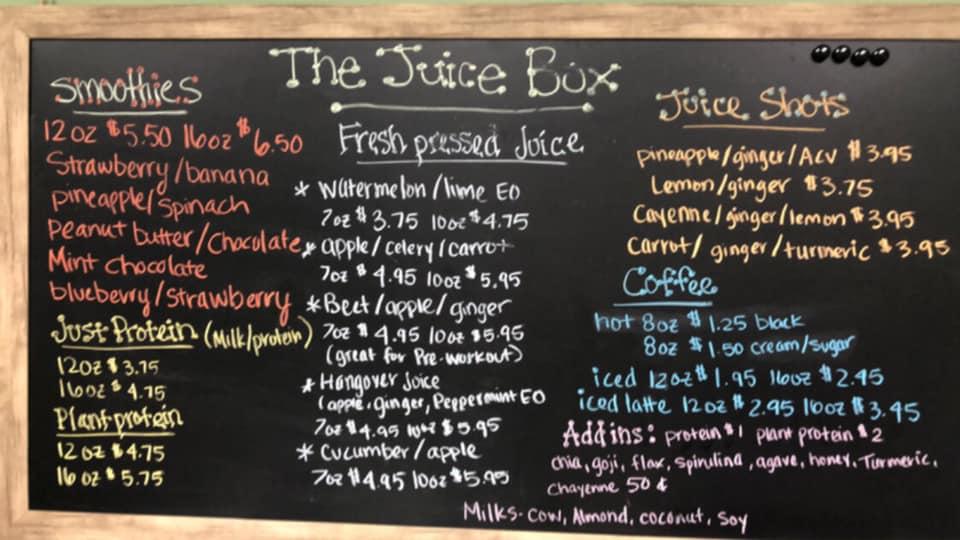 The Juice Box
Smoothies
12oz $5.50 16oz $6.50
Strawberry/banana
pineapple/spinach
Peanut butter/Chocolate
Mint Chocolate
blueberry/strawberry
Just Protein (Milk/protein)
12oz $3.75
16oz $4.75
Plant protein
12oz $4.75
16oz $5.75
Fresh pressed Juice
* Watermelon/lime EO
7oz $3.75 10oz $4.75
* apple/celery/carrot
7oz $4.95 10oz $5.95
* Beet/apple/ginger
7oz $4.95 10oz $5.95
(great for Pre-workout)
* Hangover Joice
(apple, ginger, Peppermint EO
7oz $4.95 10oz $5.95
* Cucumber/apple
7oz $4.95 10oz $5.95
Juice Shots
pineapple/ginger/ACV $3.95
Lemon/ginger $3.75
Cayenne/ginger/lemon $3.95
Carrot/ginger/turmeric $3.95
Coffee
hot 8oz $1.25 black
8oz $1.50 cream/sugar
iced 12oz $1.95 16oz $2.45
iced latte 12oz $2.95 16oz $3.45
Add ins: protein $1 plant protein $2
chia, goji, flax, spirulina, agave, honey, Turmeric,
Chayenne 50¢
Milks- Cow, Almond, coconut, Soy